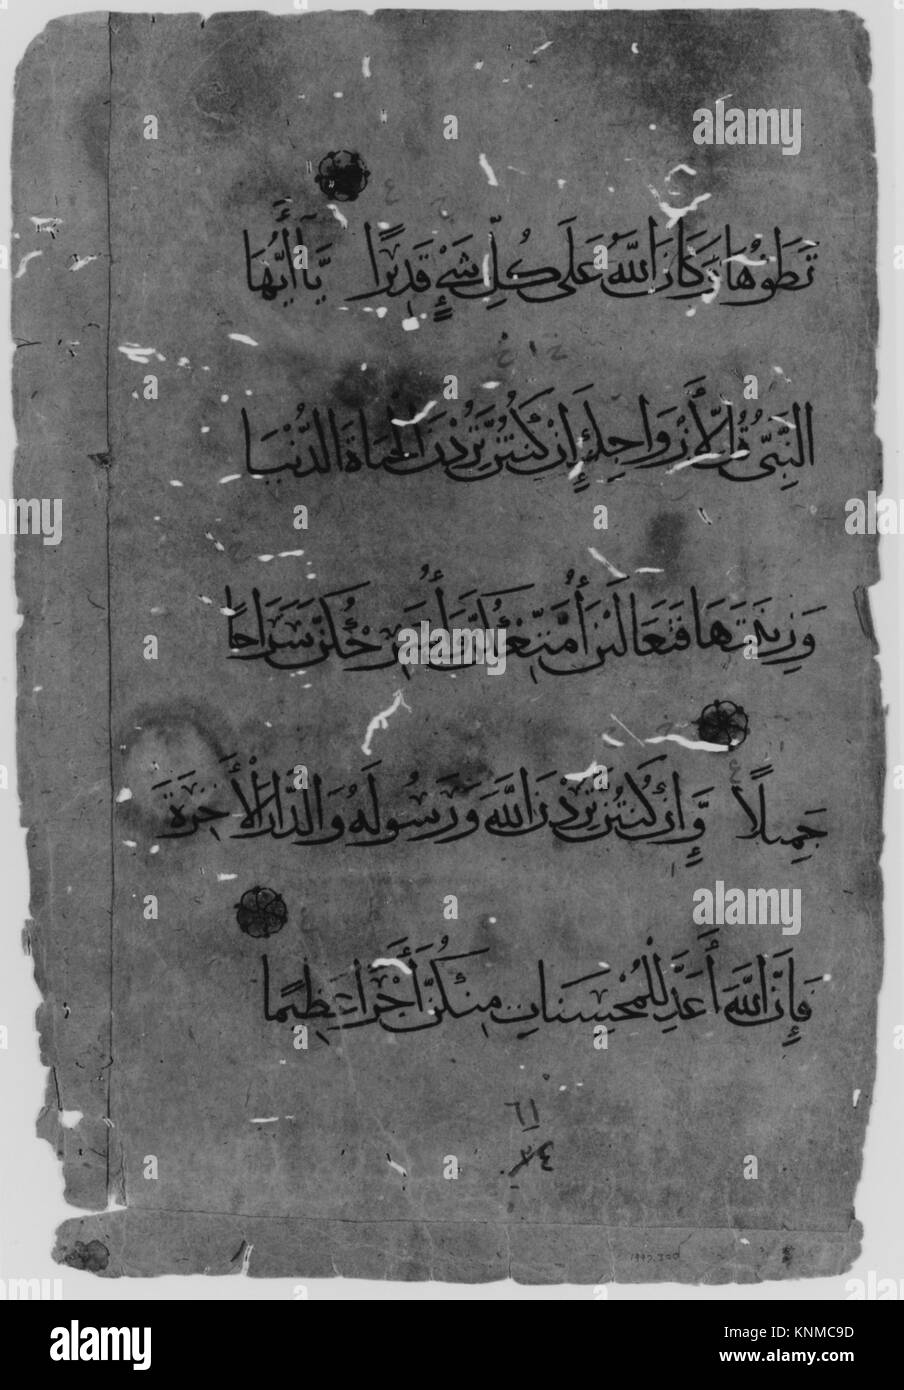 تَطَوُهَا وَكَانَ اللَّهُ عَلَى كُلِّ شَيْءٍ قَدِيرًا يَا أَيُّهَا
النَّبِيُّ قُل لِّأَزْوَاجِكَ إِن كُنتُنَّ تُرِدْنَ الْحَيَاةَ الدُّنْيَا
وَزِينَتَهَا فَتَعَالَيْنَ أُمَتِّعْكُنَّ وَأُسَرِّحْكُنَّ سَرَاحًا
جَمِيلًا وَإِن كُنتُنَّ تُرِدْنَ اللَّهَ وَرَسُولَهُ وَالدَّارَ الْأَخِرَةَ
فَإِنَّ اللَّهَ أَعَدَّ لِلْمُحْسِنَاتِ مِنكُنَّ أَجْرًا عَظِيمًا
٦١
alamy
Image ID: KNMC9D
www.alamy.com